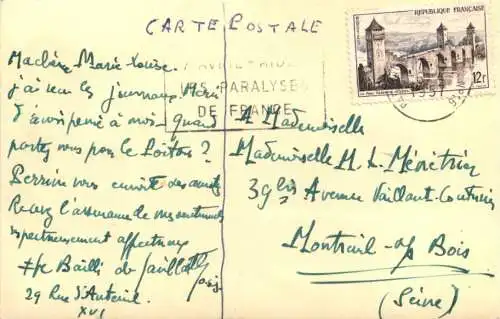 CARTE POSTALE
REPUBLIQUE FRANÇAISE
12F
1957
PARALYSES
DE FRANCE
Ma chère Marie-Louise.
j'ai reçu les journaux. Merci
d'avoir pensé à moi. quand
partez vous pour le Poitou?
Perrin vous envoie des amitiés
Recevez l'assurance de mes sentiments
respectueusement affectueux
Bailli de
29 Rue d'Auteuil
XVI
A Mademoiselle
Mademoiselle M. L. Ménétrier
39 bis Avenue Vaillant-Couturier
Montreuil s/s Bois
(Seine)